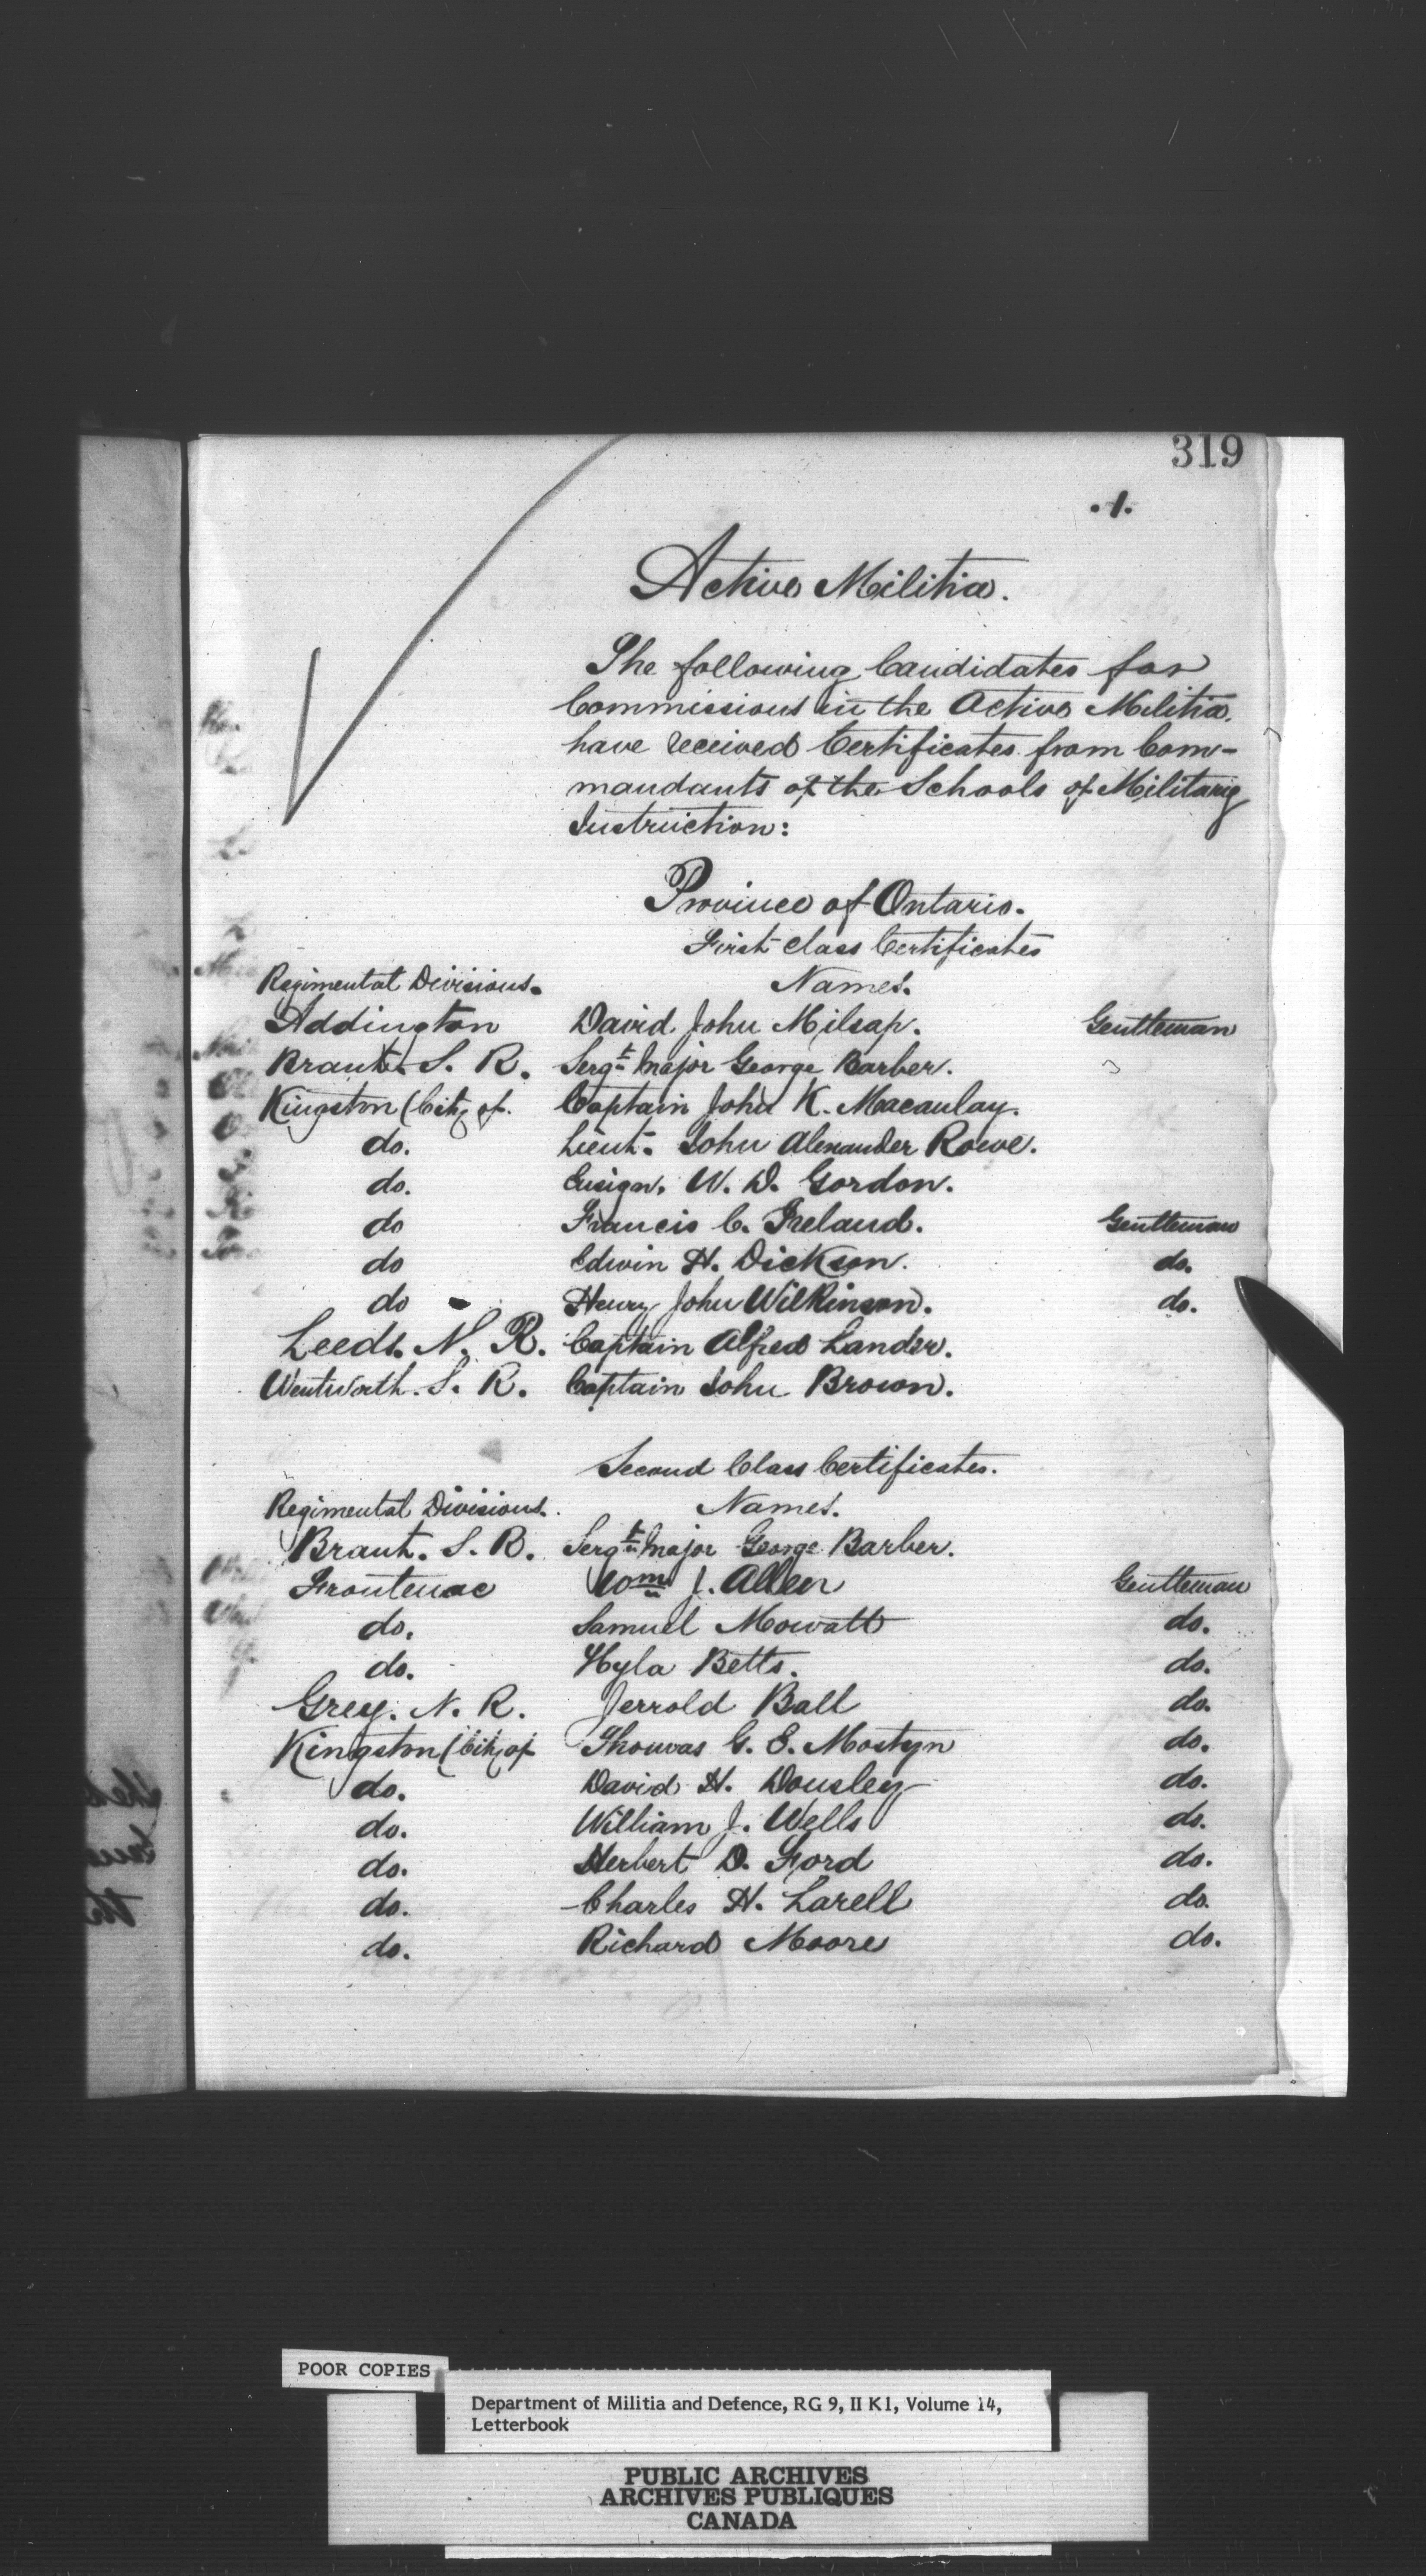 319
. 1.
Active Militia.
The following Candidates for
Commissions in the Active Militia.
have received Certificates from Com-
mandants of the Schools of Military
Instruction:
Province of Ontario.
First Class Certificates
Regimental Divisions. Names.
Addington David John Milsap. Gentleman
Brant. S. R. Sergt Major George Barber.
Kingston (City of. Captain John K. Macaulay.
do. Lieut. John Alexander Rowe.
do. Ensign. W. D. Gordon.
do Francis C. Ireland. Gentleman
do Edwin H. Dickson. do.
do Henry John Wilkinson. do.
Leeds. N. R. Captain Alfred Lander.
Wentworth. S. R. Captain John Brown.
Second Class Certificates.
Regimental Divisions. Names.
Brant. S. R. Sergt Major George Barber.
Frontenac Wm J. Allen Gentleman
do. Samuel Mowatt do.
do. Hyla Betts. do.
Grey. N. R. Jerrold Ball do.
Kingston (City of Thomas G. E. Mostyn do.
do. David H. Dousley do.
do. William J. Wells do.
do. Herbert D. Ford do.
do. Charles H. Larell do.
do. Richard Moore do.
POOR COPIES
Department of Militia and Defence, RG 9, II K1, Volume 14,
Letterbook
PUBLIC ARCHIVES
ARCHIVES PUBLIQUES
CANADA